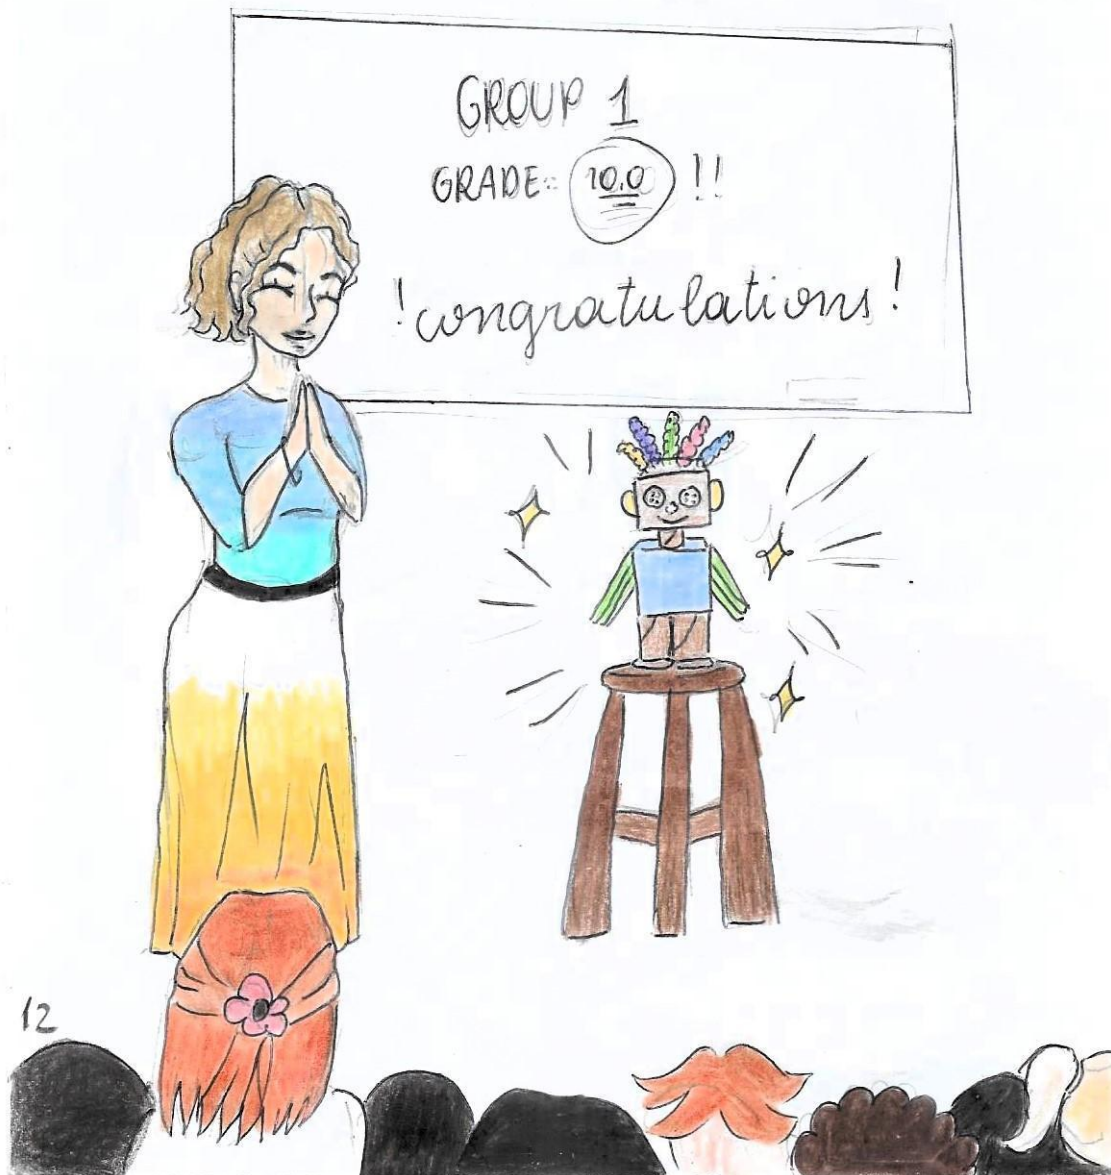 GROUP 1
GRADE: 10.0 !!
!congratulations!
12